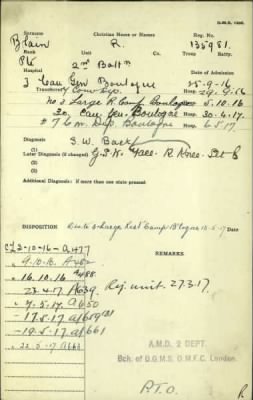 D.M.S. 1300.
Surname Christian Name or Names Reg. No.
Blain R. 135981.
Rank Unit Troop Batty.
Pte 2nd Battn
Hospital Date of Admission
3 Can Gen Boulogne 25-9-16
Transferred Conv Dep. Hosp. 29.9.16
No 3 Large R Camp Boulogne 5.10.16
3o. Can Gen Boulogne Hosp. 30.4.17
#7 Con. Dep. Boulogne Hosp. 6.5.17
Diagnosis S.W. Back
(1)
Later Diagnosis (if changed) G.S.W. Face. R Knee.
(2)
(3)
Additional Diagnosis: if more than one state present
DISPOSITION Rest Camp B'logne 17
C.L. 2-10-16 - A477
REMARKS
" 9.10.16 A482
" 16.10.16 A488.
" 27.4.17 A639 Rej. unit. 27.3.17.
" 7.5.17 A650
" -17.5.17 A659
" -19.5.17 A661
" 22.5.17 A663
A.M.D. 2 DEPT.
Bch. of D.G.M.S. O.M.F.C. London.
P.T.O.
R.